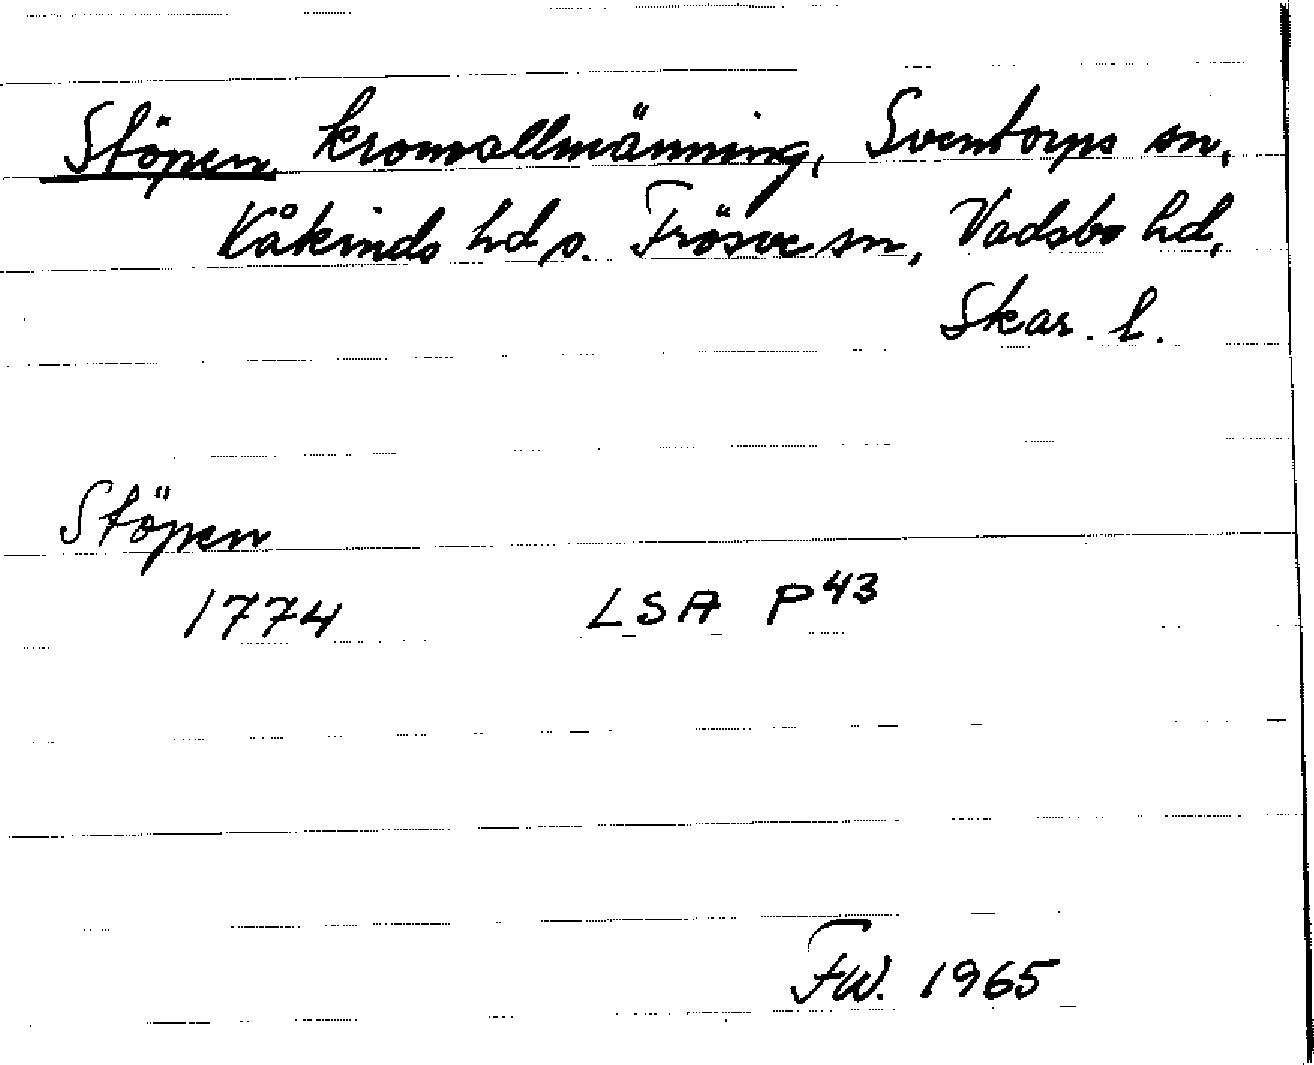 Stöpen kronoallmänning, Sventorps sn,
Kåkinds hd o. Frösve sn, Vadsbo hd,
Skar. l.
Stöpen
1774 LSA P43
FW. 1965